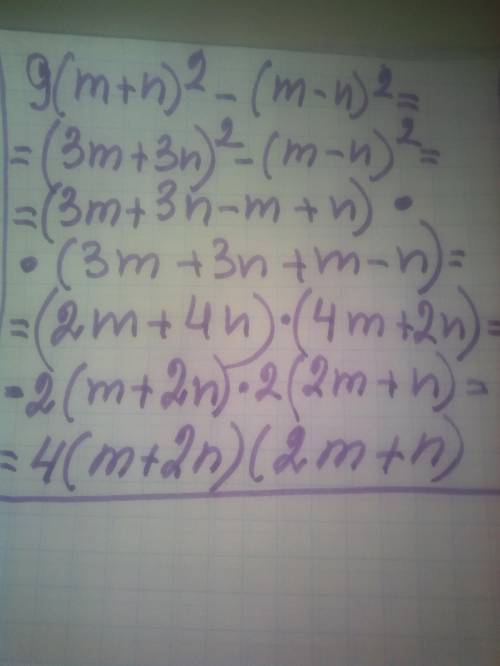 9(m+n)²-(m-n)²=
=(3m+3n)²-(m-n)²=
=(3m+3n-m+n)·
·(3m+3n+m-n)=
=(2m+4n)·(4m+2n)=
=2(m+2n)·2(2m+n)=
=4(m+2n)(2m+n)